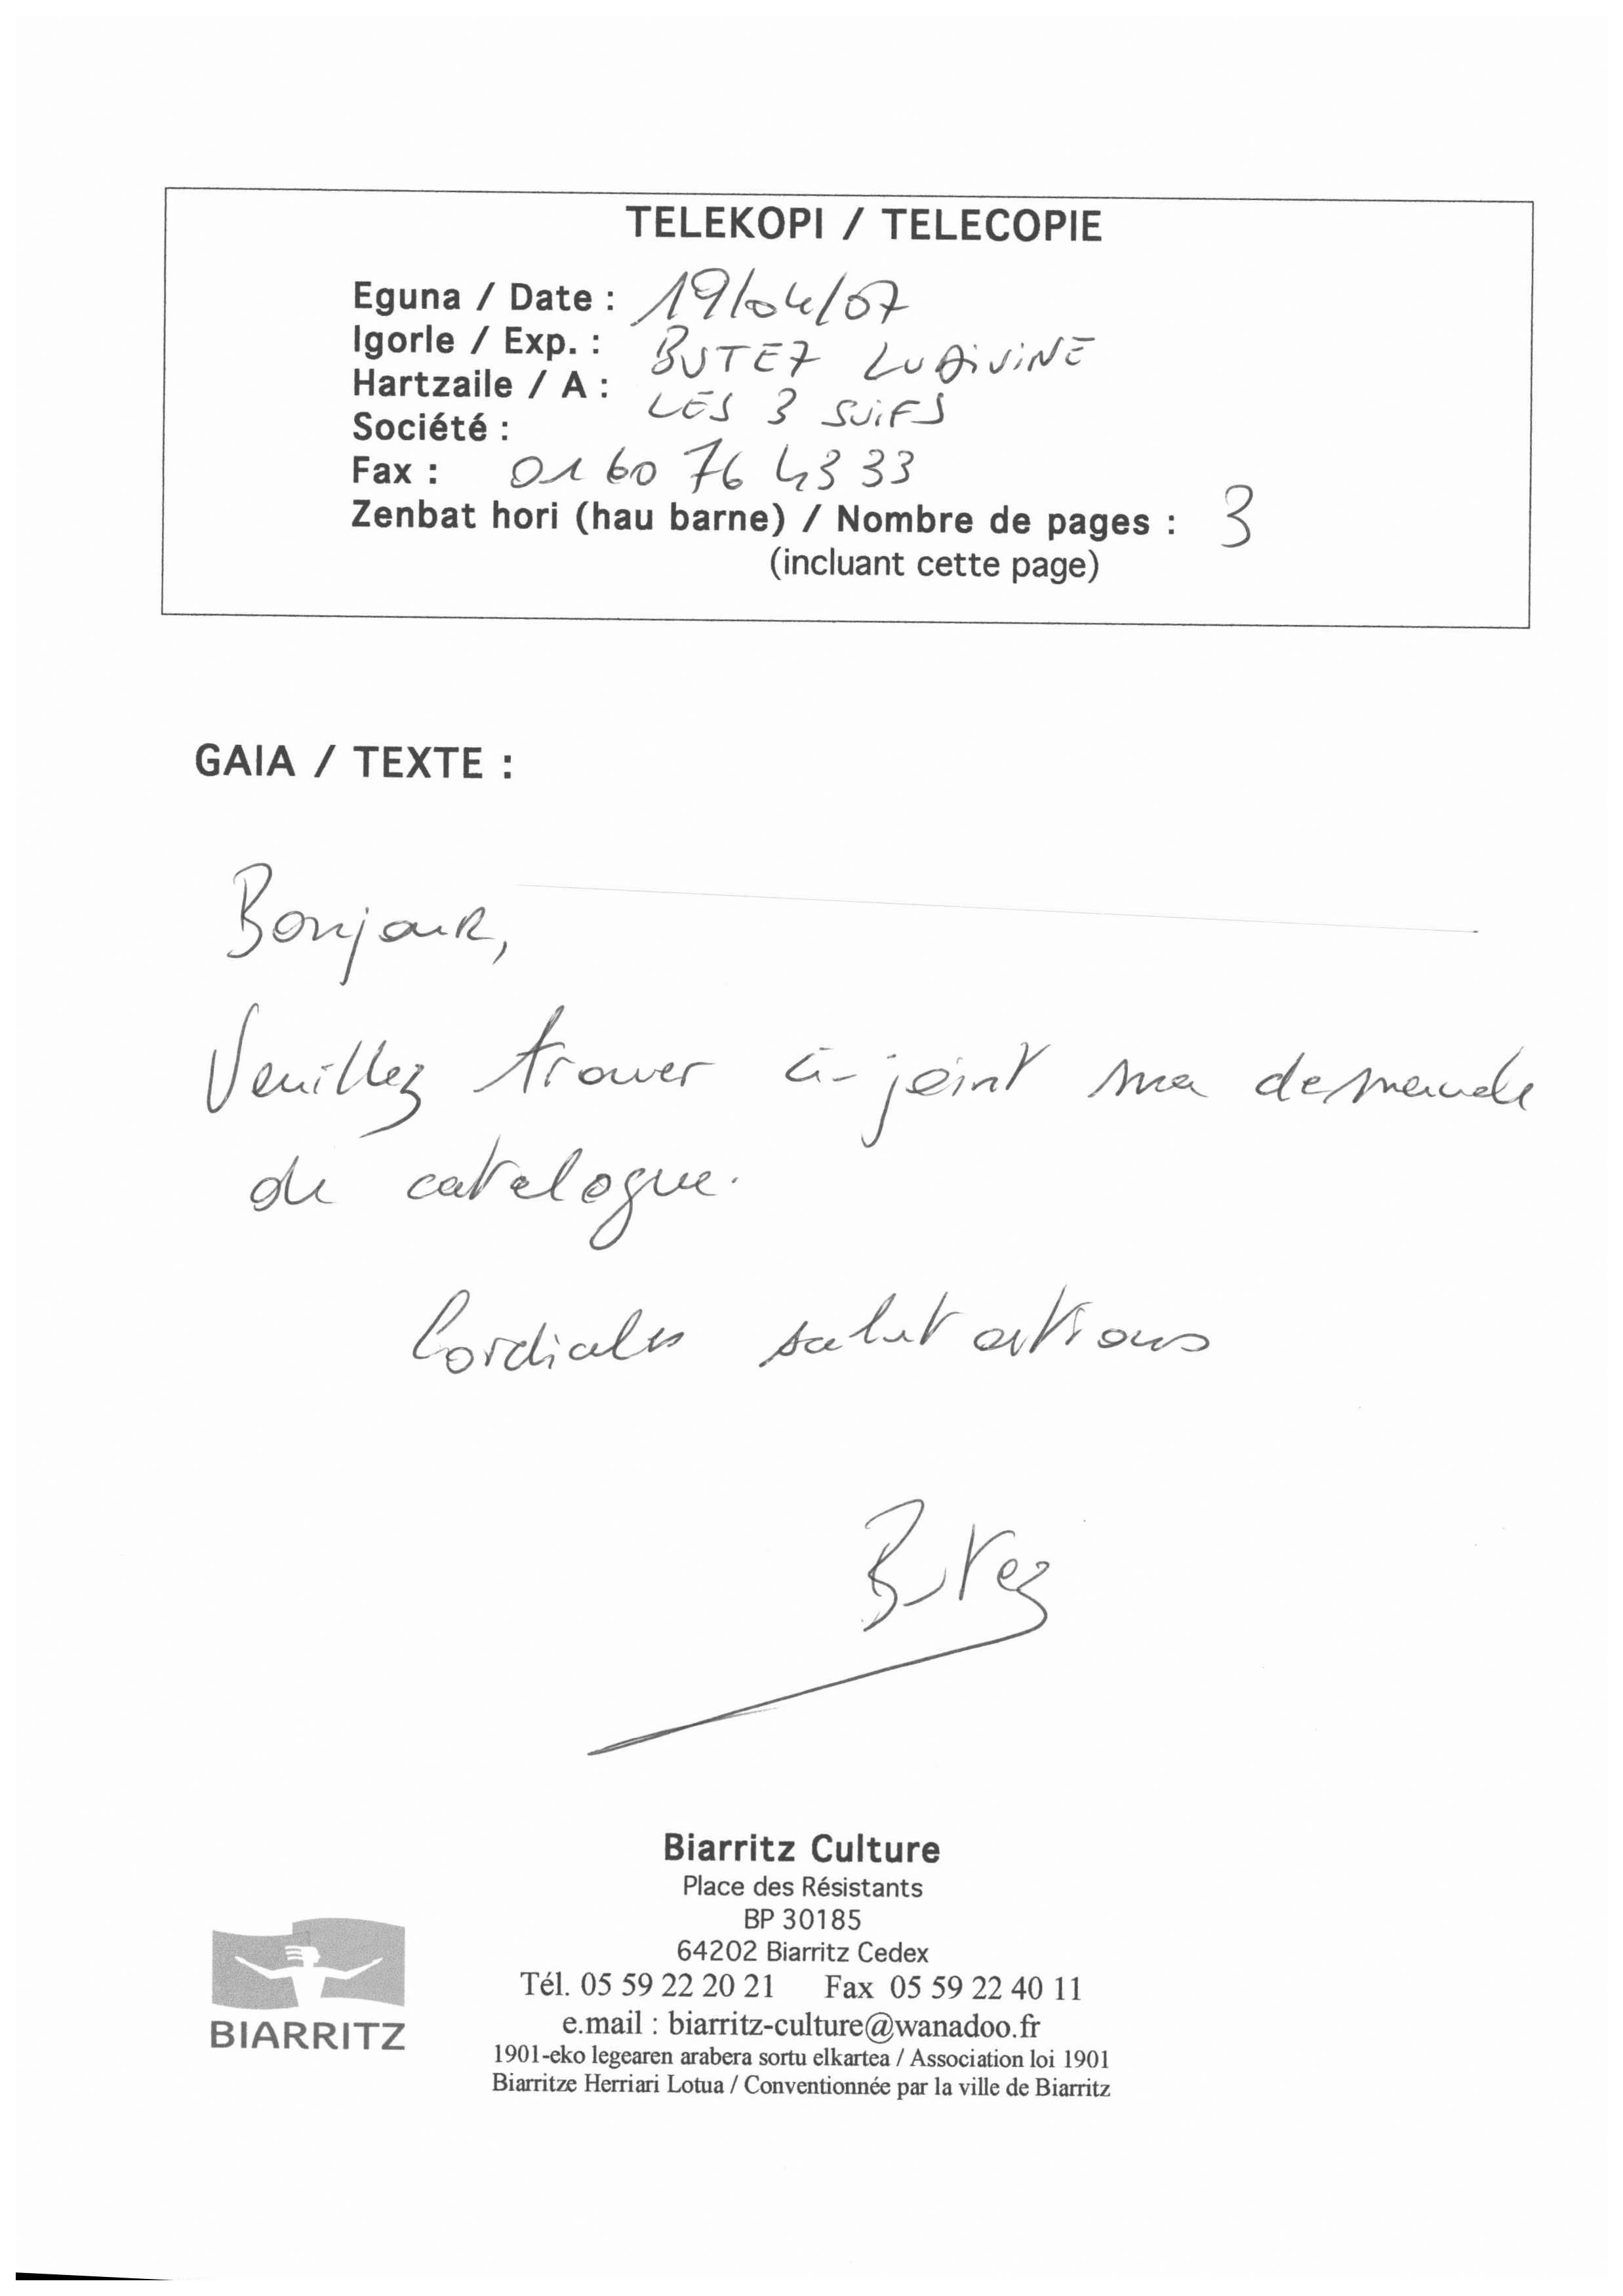 TELEKOPI / TELECOPIE
Eguna / Date : 19/04/07
Igorle / Exp. : BUTEZ LUDIVINE
Hartzaile / A : LES 3 SUIFS
Société :
Fax : 01 60 76 43 33
Zenbat hori (hau barne) / Nombre de pages : 3
(incluant cette page)
GAIA / TEXTE :
Bonjour,
Veuillez trouver ci-joint ma demande
de catalogue.
Cordiales salutations
Butez
Biarritz Culture
Place des Résistants
BP 30185
64202 Biarritz Cedex
Tél. 05 59 22 20 21 Fax 05 59 22 40 11
e.mail : biarritz-culture@wanadoo.fr
1901-eko legearen arabera sortu elkartea / Association loi 1901
Biarritze Herriari Lotua / Conventionnée par la ville de Biarritz
BIARRITZ